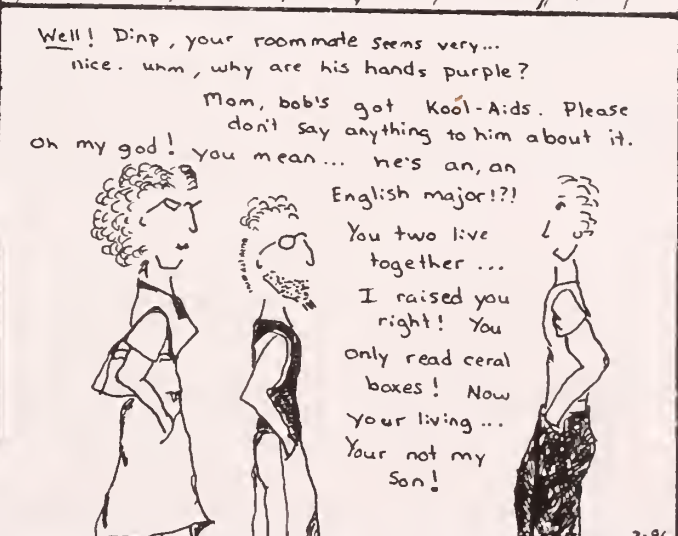 Well! Dinp, your roommate seems very...
nice. uhm, why are his hands purple?
Mom, bob's got Kool-Aids. Please
don't say anything to him about it.
Oh my god! you mean... he's an, an
English major!?!
You two live
together ...
I raised you
right! You
only read ceral
boxes! Now
your living ...
Your not my
Son!